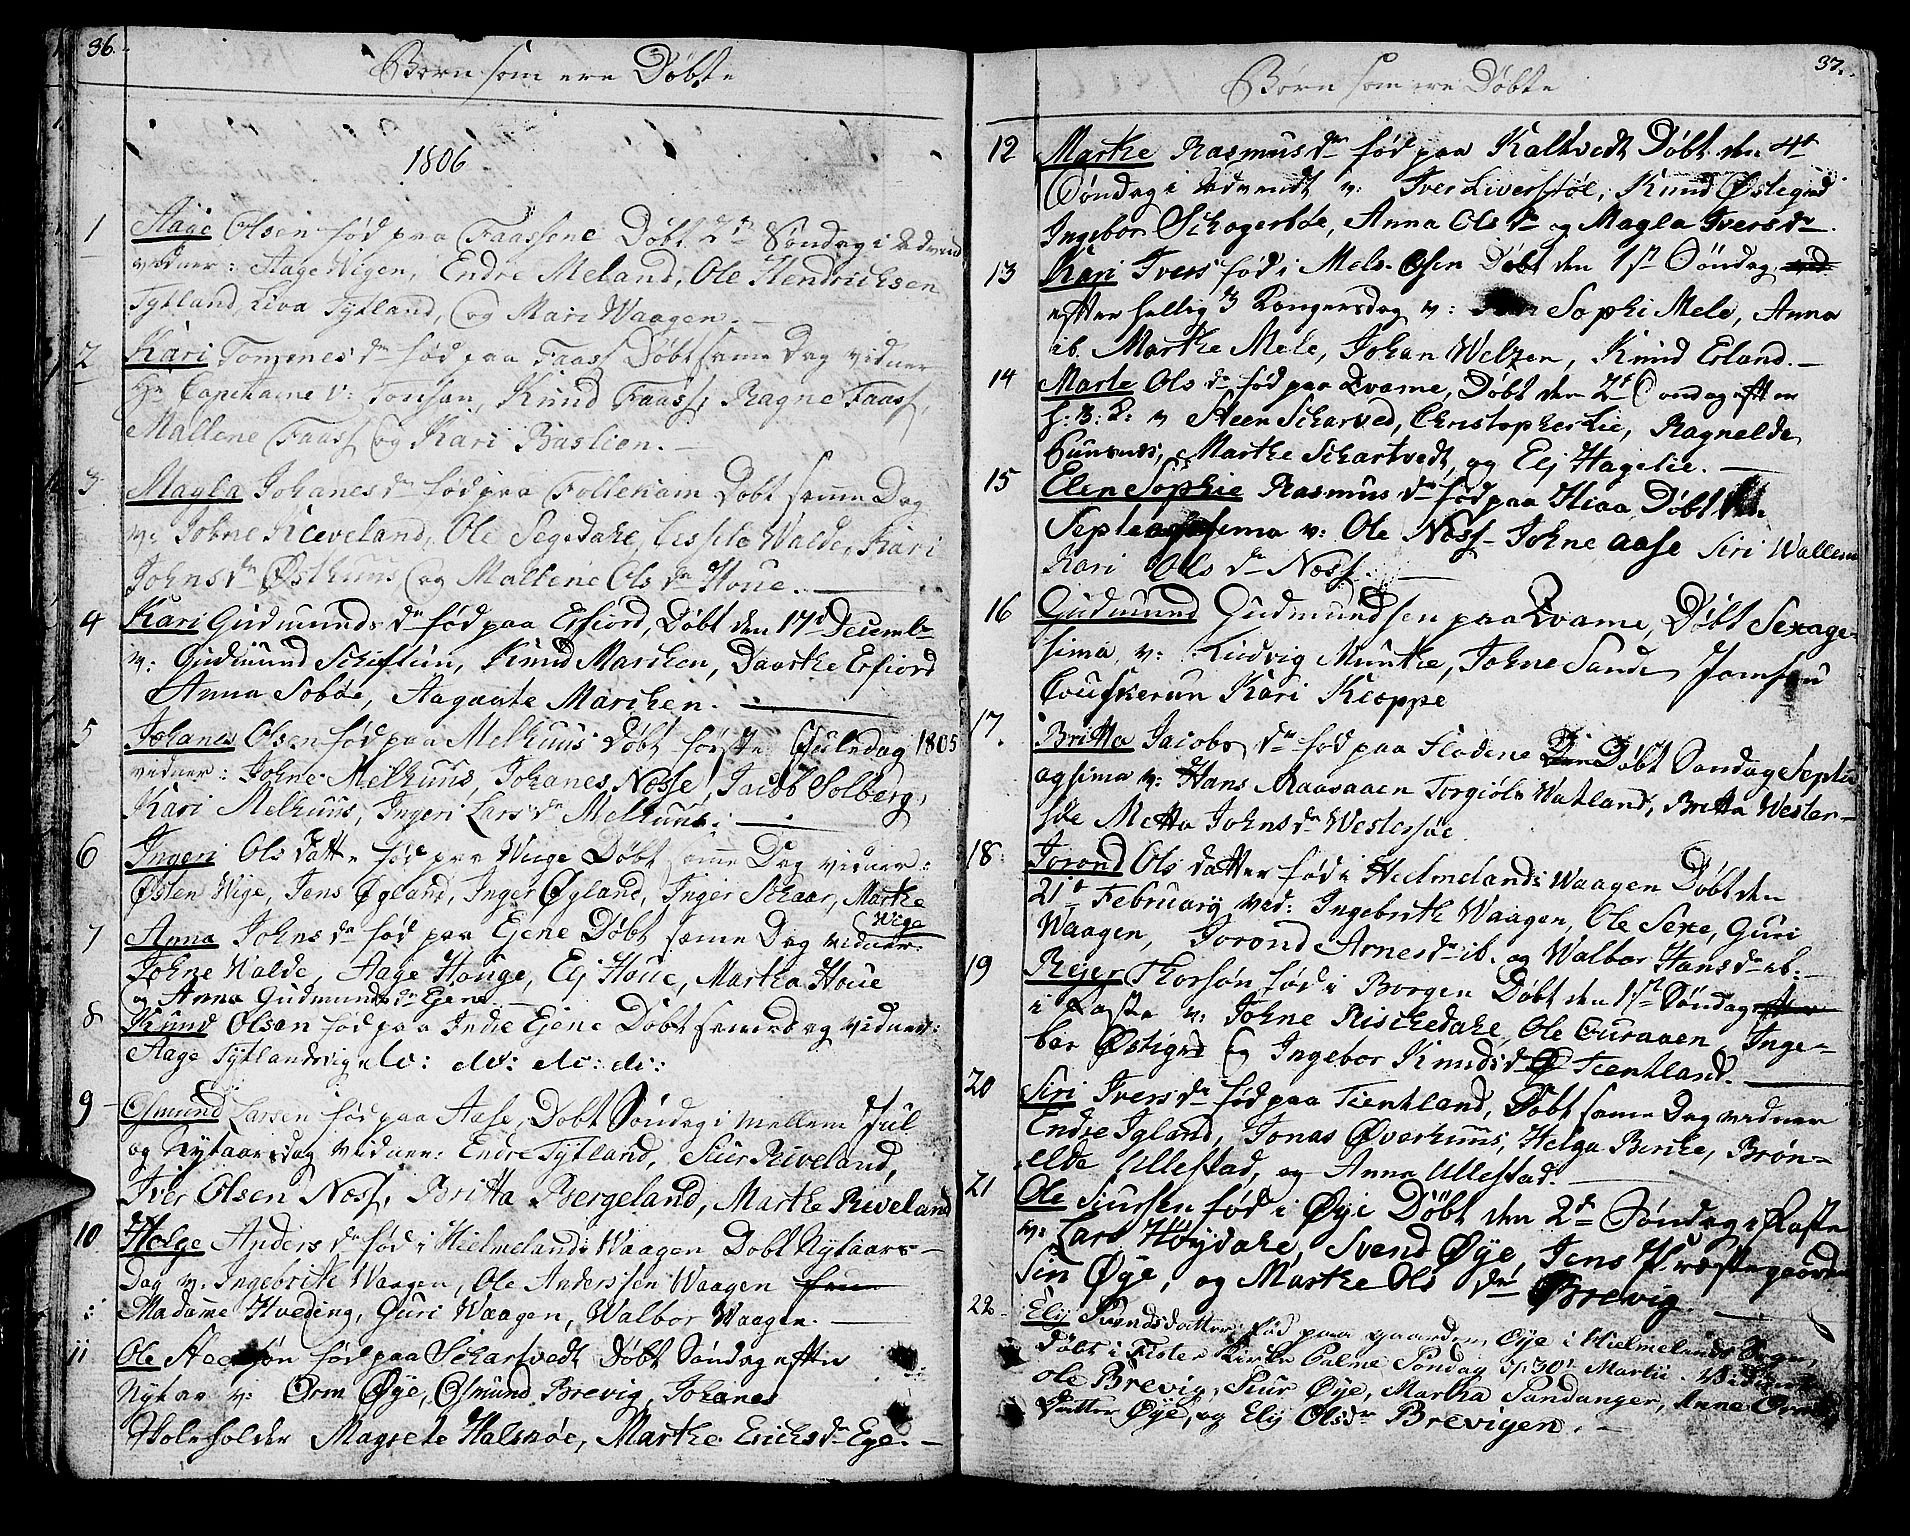 36.
Børn som ere Døbte
1806
1 Aage Olsen fød paa Faassene Døbt 2den Søndag i Advend
vidner: Aage Wigen, Endre Meland, Ole Hendrichsen
Tytland, Liva Tytland, og Mari Waagen.
2 Kari Tonsenes dr fød paa Faass Døbt samme Dag vidner
Hr Capehaine v: Tonsan, Knud Faass, Ragne Faass,
Mallene Faass og Kari Bastien.
3 Magla Johanes dr fød paa Follekam Døbt samme Dag
v: Johne Kleveland, Ole Segedahe, Walde, Kari
Johns dr Østhuus og Mallene Ols dr Houe.
4 Kari Gudmunds dr fød paa Erfiord, Døbt den 17d Decembr
v: Gudmund Schiftun, Knud Marchen, Daarthe Erfiord
Anna Sobøe, Aagaate Marchen.
5 Johanes Olsen fød paa Melhuus Døbt første Juledag 1805
vidner: Johne Melhuus, Johanes Nosse, Jacob Solberg,
Kari Melhuus, Ingeri Lars dr Melhuus.
6 Ingeri Ols Datter fød paa Wiige Døbt samme Dag vidner:
Østen Wige, Jens Øgland, Inger Øgland, Inger Schaar, Marthe
Wige
7 Anna Johns dr fød paa Ejene Døbt samme Dag vidner:
Johne Walde, Aage Houge, Elj Houe, Martha Houe
og Anna Gudmunds dr Ejene.
8 Knud Olsen fød paa Indre Ejene Døbt samme dag vidner:
Aage Tytlandsvig do: do: do: do:
9 Osmund Larsen fød paa Aase, Døbt Søndag i mellem Jul
og Nytaarsdag vidner: Endre Tytland, Siur Riveland,
Iver Olsen Næss, Britta Bergeland, Marthe Riveland
10 Helge Anders dr fød i Hielmelands Waagen Døbt Nytaars-
Dag v: Ingebrith Waagen, Ole Anderssen Waagen
Madame Hveding, Guri Waagen, Walbor Waagen.
11 Ole Steensøn fød paa Schartvedt Døbt Søndag efter
Nytaar v: Orm Øye, Osmund Brevig, Johanes
Skoleholder Magrete Halsnøe, Marthe Erichs dr Ege.
37.
Børn som ere Døbte
12 Marthe Rasmus dr fød paa Kaltvedt Døbt den 4de
Søndag i Advendt v: Iver Liversføe, Knud Østegrd
Ingebor Schogerbøe, Anna Ols dr og Magla Ivers dr.
13 Kari Ivers fød i Mels-Osen Døbt den 1st Søndag
efter hellig 3 Kongersdag v: Sophi Mele, Anna
ib. Marthe Mele, Johan Welzen, Knud Erland.
14 Marte Ols dr fød paa Qvame, Døbt den 2d Søndag efter
h: 3: K: v Steen Scharved, Christopher Lie, Ragnelde
Puntsnes, Marthe Schartvedt, og Elj Hagelie.
15 Elen Sophie Rasmus dr fød paa Hiaa Døbt
Septeagesima v: Ole Næss Johne Aase Siri Wallem
Kari Ols dr Næss.
16 Gudmund Gudmundsen paa Qvame, Døbt Sexage-
sima v: Ludvig Munthe, Johne Sande Jomfru
Kari Kloppe
17. Britta Jacobs dr fød paa Flodene Døbt Søndag Septu
agsima v: Hans Raasaaen Torgiøls Watland, Britta Wester-
søe Metta Johns dr Westersøe
18. Torond Ols datter fød i Hielmelands Waagen Døbt den
21d February ved: Ingebrith Waagen, Ole Sexe, Guri
Waagen, Torond Arnes dr ib. og Walbor Hans dr ib:
19 Rejer Thorsøn fød i Borgen Døbt den 1st Søndag
i Faste v: Johne Rischedahe, Ole Curaaen, Inge-
bor Østigrd og Ingebor Knuds dr Tientland.
20 Siri Ivers dr fød paa Tientland, Døbt samme Dag vidner
Endre Igland, Jonas Øverhuus, Helga Berke, Brøn-
elde Ullestad, og Anna Ullestad.
21 Ole Siursen fød i Øye Døbt den 2d Søndag i Faste
v: Lars Høydahe, Svend Øye, Jens Præstegaarden
Siri Øye, og Marthe Ols dr Brevig.
22. Elj Svendsdatter fød paa gaarden Øye i Hielmelands Sogn,
Døbt i Fister Kirke Palme Søndag 3/30t Martii. Vidner
Ole Brevig, Siur Øye, Martha Sandanger, Anne
datter Øye, og Elj Olsdr Brevigen.